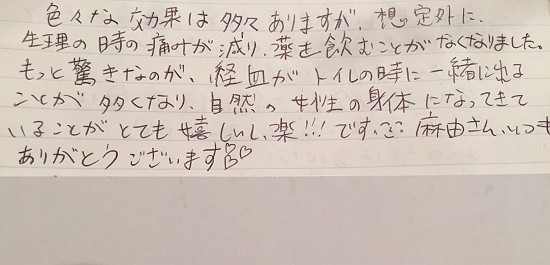 色々な効果は多々ありますが、想定外に、
生理の時の痛みが減り、薬を飲むことがなくなりました。
もっと驚きなのが、経血がトイレの時に一緒に出る
ことが多くなり、自然の女性の身体になってきて
いることがとても嬉しいし、楽!!!です。麻由さん、いつも
ありがとうございます♡♡